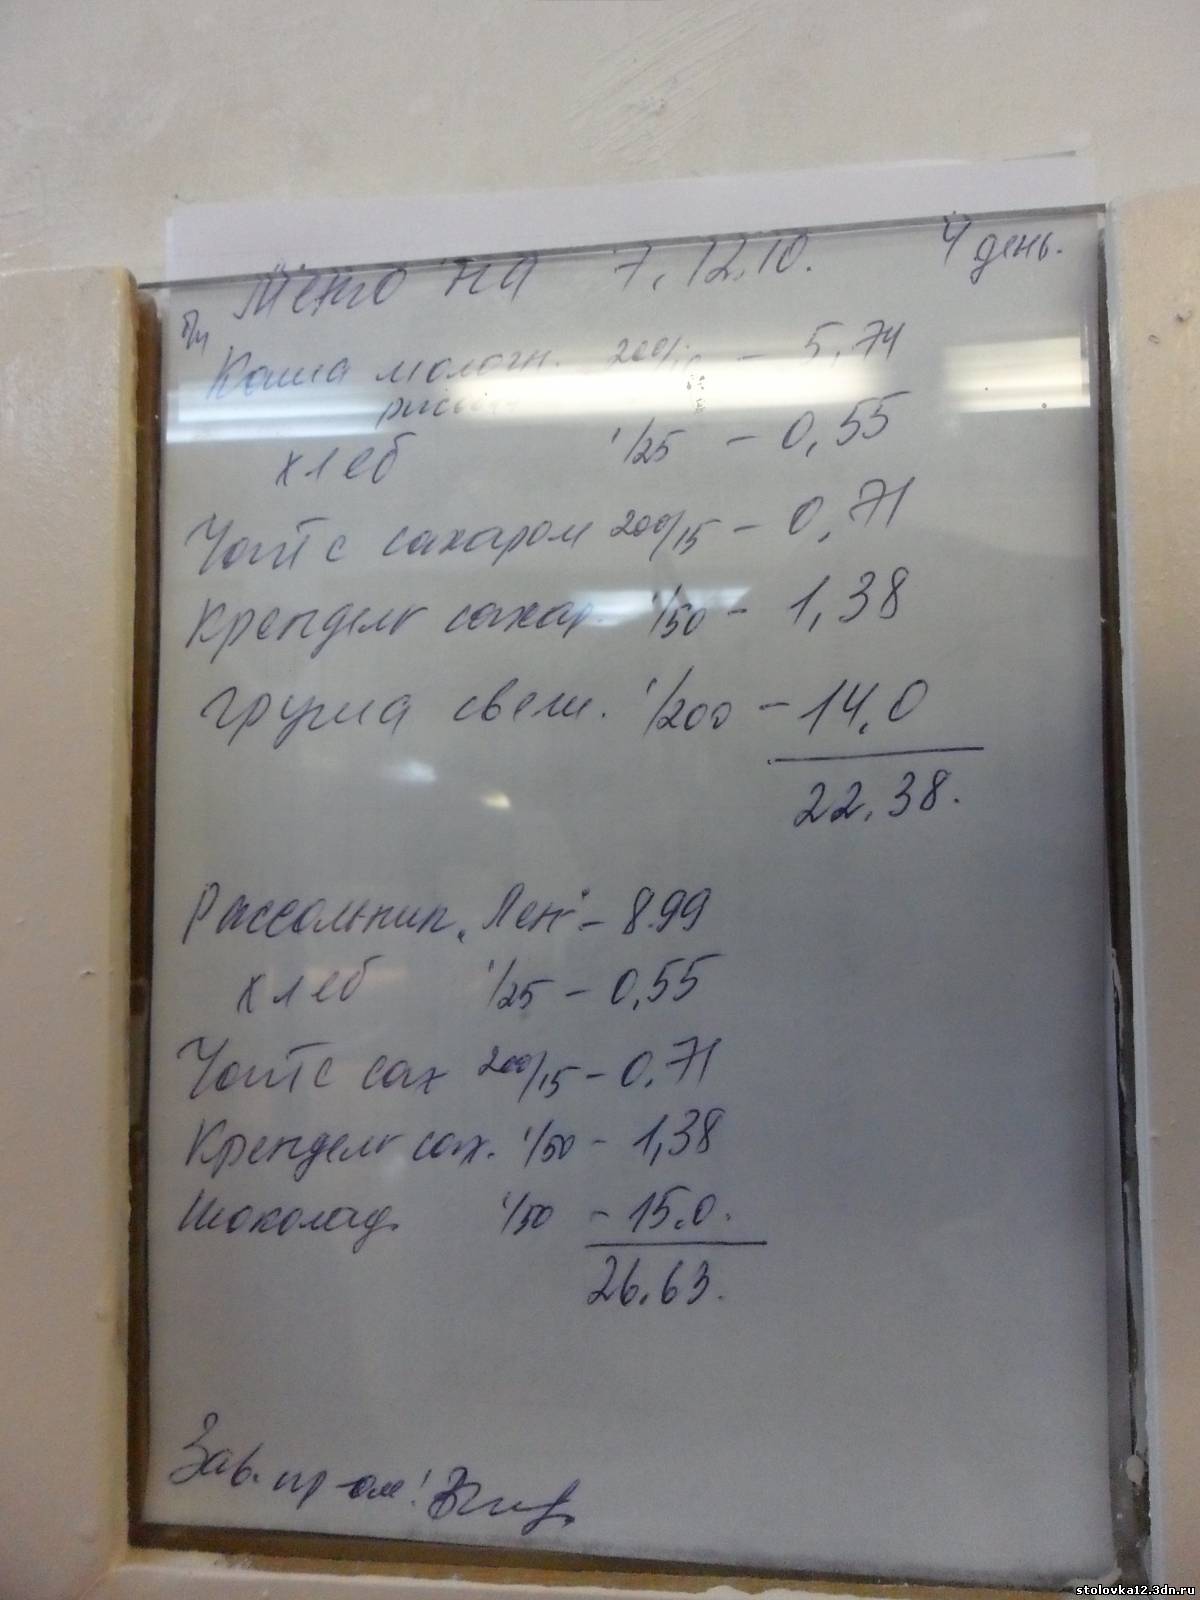 Меню на 7.12.10. 4 день.
б/п
Каша молочн. 200/10 - 5,74
рисов
хлеб 1/25 - 0,55
Чай с сахаром 200/15 - 0,71
Крендель сахар. 1/50 - 1,38
груша свеж. 1/200 - 14,0
22,38.
Рассольник "Лен" - 8.99
хлеб 1/25 - 0,55
Чай с сах 200/15 - 0,71
Крендель сах. 1/50 - 1,38
Шоколад. 1/50 - 15.0.
26,63.
Зав. пр-ом:
stolovka12.3dn.ru